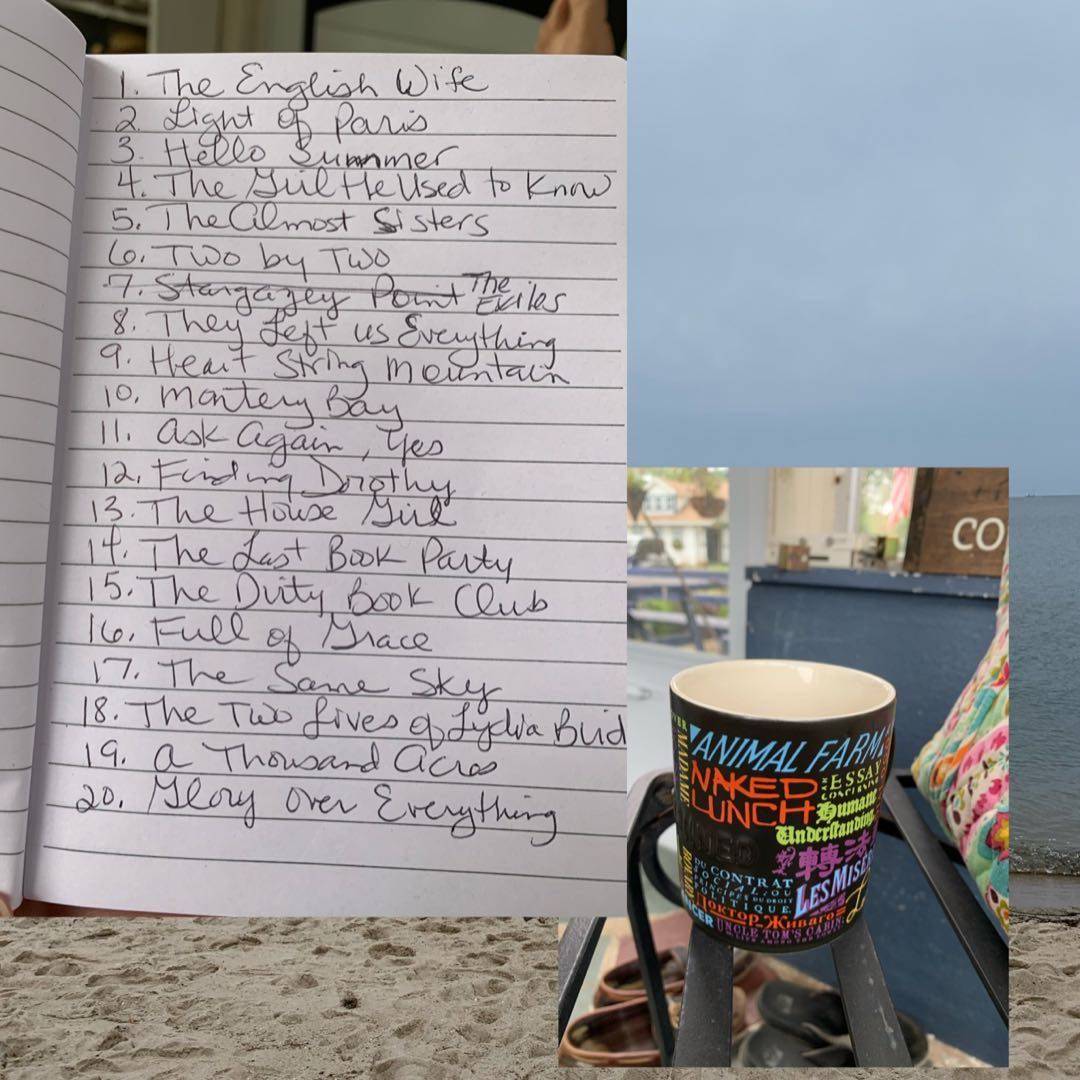 1. The English Wife
2. Light of Paris
3. Hello Summer
4. The Girl He Used to Know
5. The Almost Sisters
6. Two by Two
7. Stargazey Point The Exiles
8. They Left us Everything
9. Heart String Mountain
10. Montery Bay
11. Ask Again, Yes
12. Finding Drothy
13. The House Girl
14. The Last Book Party
15. The Dirty Book Club
16. Full of Grace
17. The Same Sky
18. The Two Lives of Lydia Bird
19. A Thousand Acres
20. Glory over Everything
CO
MADAME
ANIMAL FARM
NAKED
LUNCH
ESSAY
CONCERNING
Humane
Understanding
轉法
DU CONTRAT
SOCIAL, OU
PRINCIPES DU DROIT
POLITIQUE
LES MISÉR
ДОКТОР ЖИВАГО
UNCLE TOM'S CABIN